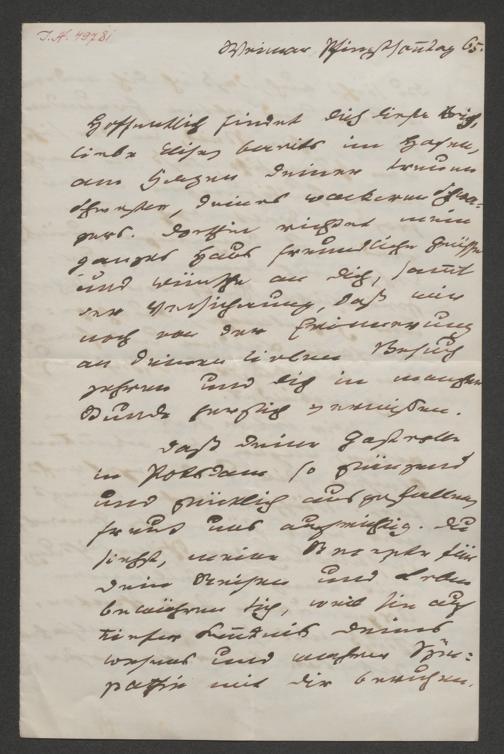 J.N. 49781
Weimar Pfingstsonntag 65.
Hoffentlich findet dich diese
liebe Elise, bereits im Hafen,
am Herzen deiner treuen
Schwester, deines wackeren Schwa-
gers. Dorthin richtet mein
ganzes Haus freundliche Grüße
und Wünsche an dich, samt
der Versicherung, daß wir
noch von der Erinnerung
an deinen lieben Besuch
zehren und dich in mancher
Stunde herzlich vermissen.
Daß deine Gastrolle
in Potsdam so glänzend
und glücklich ausgefallen,
freut uns aufrichtig. Du
siehst, meine Rezepte für
dein Reisen und Leben
bewähren sich, weil sie auf
tiefer Kenntnis deines
Wesens und wahrer Sym-
pathie mit dir beruhen.